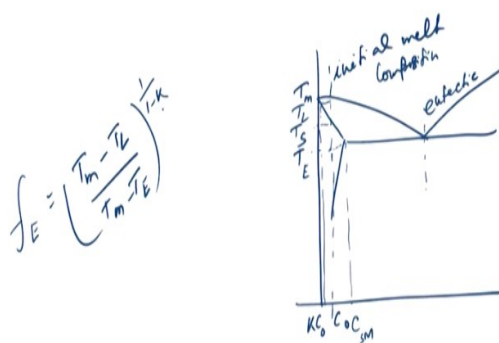 f_E = ( (T_m - T_L) / (T_m - T_E) )^(1/(1-K))
initial melt
eutectic
T_m
T_L
T_S
T_E
KC_0 C_0 C_SM